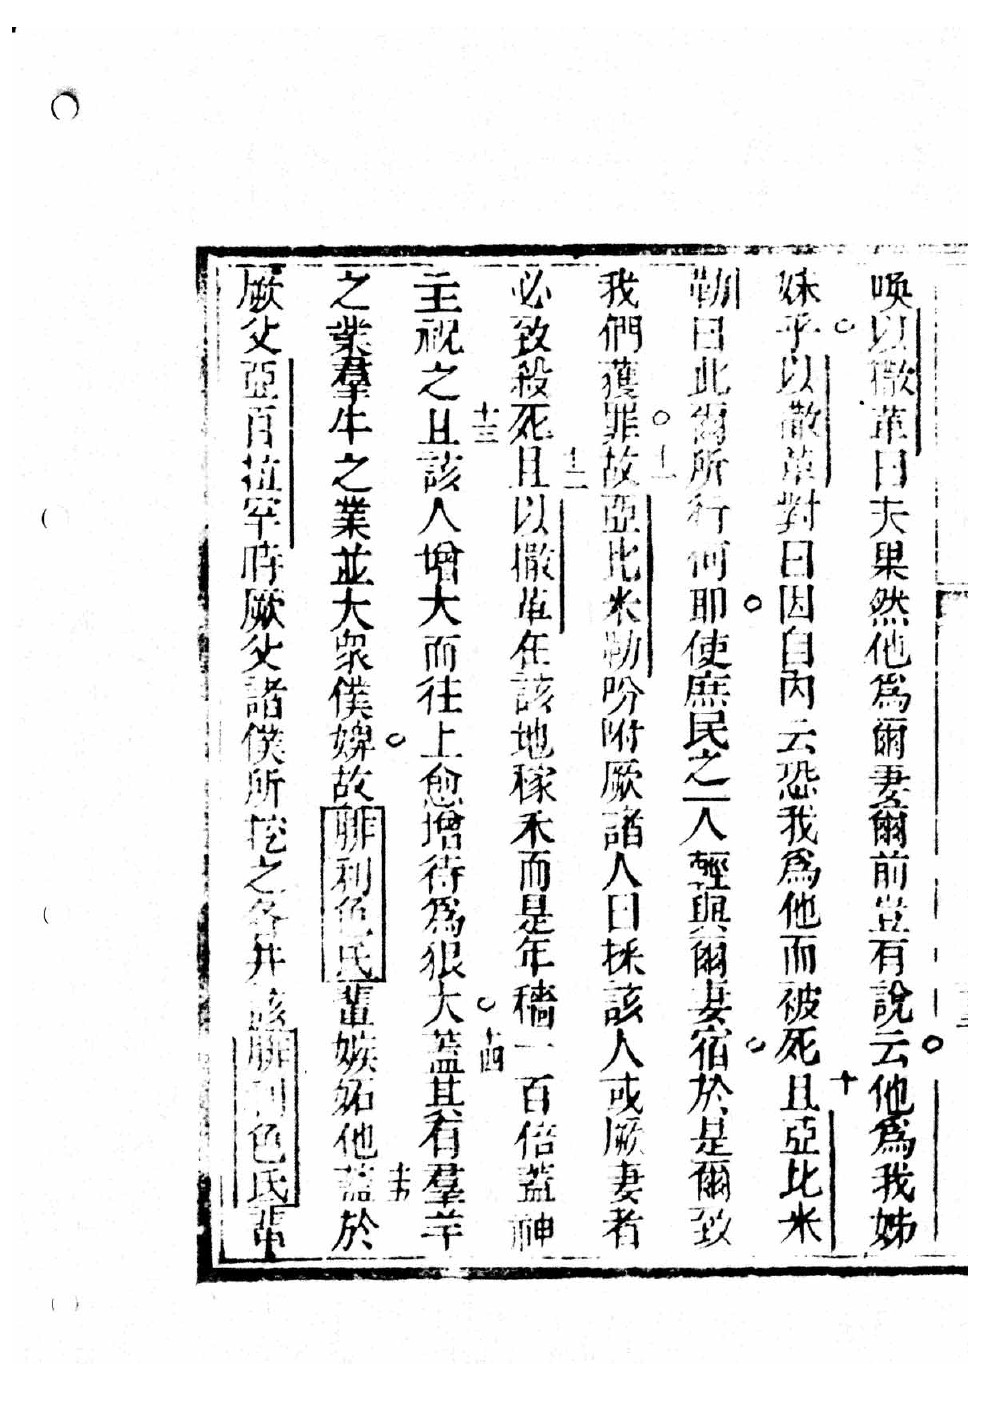 喚以撒革曰夫果然他為爾妻爾前豈有說云他為我姊
妹乎以撒革對曰因自內云恐我為他而被死十且亞比米
勒曰此爾所行何耶使庶民之一人輕與爾妻宿於是爾致
我們獲罪十一故亞比米勒吩咐厥諸人曰揉該人或厥妻者
必致殺死十二且以撒革在該地稼禾而是年穡一百倍蓋神
主視之十三且該人增大而往上愈增待為狠大十四蓋其有羣羊
之業羣牛之業並大衆僕婢故腓利色氏輩嫉妬他十五蓋於
厥父亞百拉罕時厥父諸僕所挖之各井該腓利色氏輩